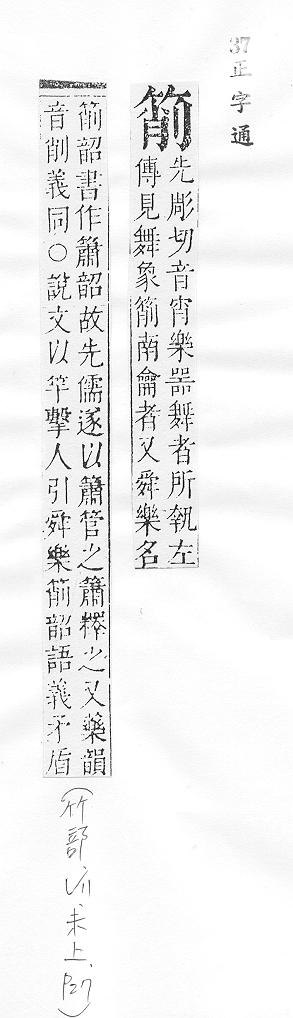 37正字通
箾
先彫切音宵樂器舞者所執左
傳見舞象箾南籥者又舜樂名
箾韶書作簫韶故先儒遂以簫管之簫釋之又藥韻
音削義同○說文以竿擊人引舜樂箾韶語義矛盾
(竹部,未上,P27)